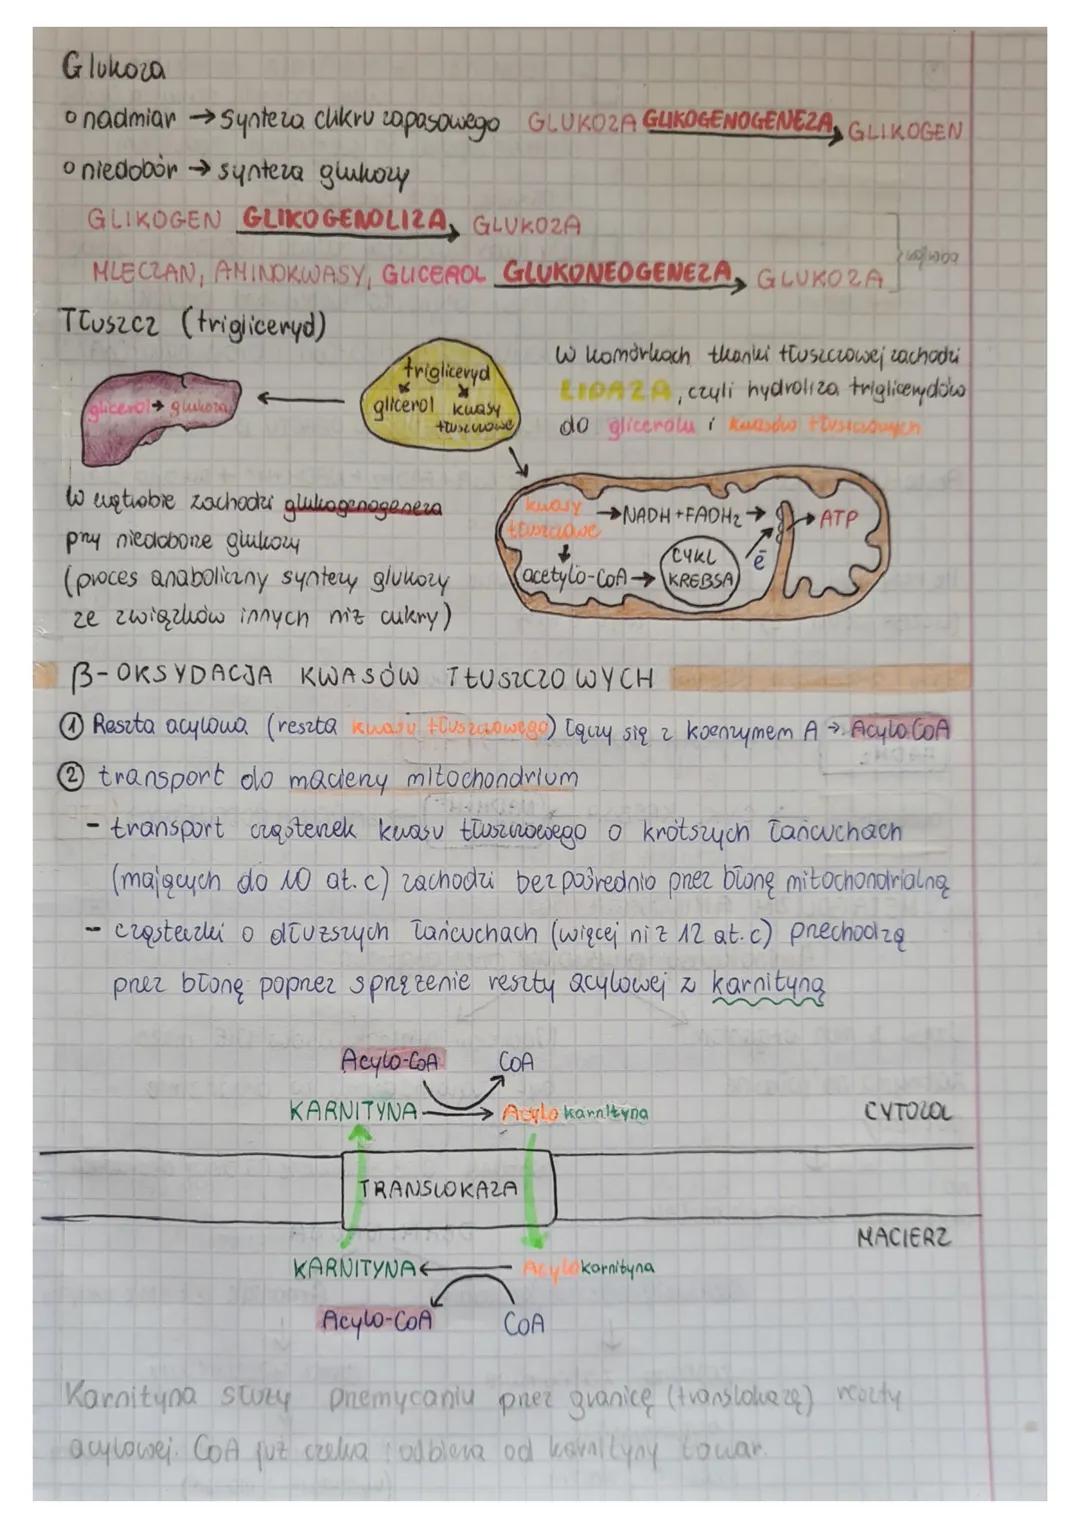 Glukoza
o nadmiar → synteza cukru zapasowego GLUKOZA GLIKOGENOGENEZA GLIKOGEN
o niedobór → synteza glukozy
GLIKOGEN GLIKOGENOLIZA GLUKOZA
MLECZAN, AMINOKWASY, GLICEROL GLUKONEOGENEZA GLUKOZA
Tłuszcz (trigliceryd)
W komórkach tkanki tłuszczowej zachodzi
LIPAZA, czyli hydroliza triglicerydów
do glicerolu i kwasów tłuszczowych
trigliceryd
glicerol kwasy
tłuszczowe
glicerol → glukoza
W wątrobie zachodzi glukogenogeneza
przy niedoborze glukozy
(proces anaboliczny syntezy glukozy
ze związków innych niż cukry)
kwasy
tłuszczowe
→ NADH + FADH2 →
→ ATP
acetylo-CoA →
CYKL
KREBSA
ē
β-OKSYDACJA KWASÓW TŁUSZCZOWYCH
① Reszta acylowa (reszta kwasu tłuszczowego) łączy się z koenzymem A → Acylo CoA
② transport do macierzy mitochondrium
- transport cząstenek kwasu tłuszczowego o krótszych łańcuchach
(mających do 10 at. c) zachodzi bezpośrednio przez błonę mitochondrialną
- cząsteczki o dłuższych łańcuchach (więcej niż 12 at. c) przechodzą
przez błonę poprzez sprzężenie reszty acylowej z karnityną
Acylo-CoA CoA
KARNITYNA → Acylo karnityna
CYTOZOL
TRANSLOKAZA
MACIERZ
KARNITYNA ← Acylokarnityna
Acylo-CoA CoA
Karnityna służy przemycaniu przez granicę (translokazę) reszty
acylowej. CoA już czeka i odbiera od karnityny towar.